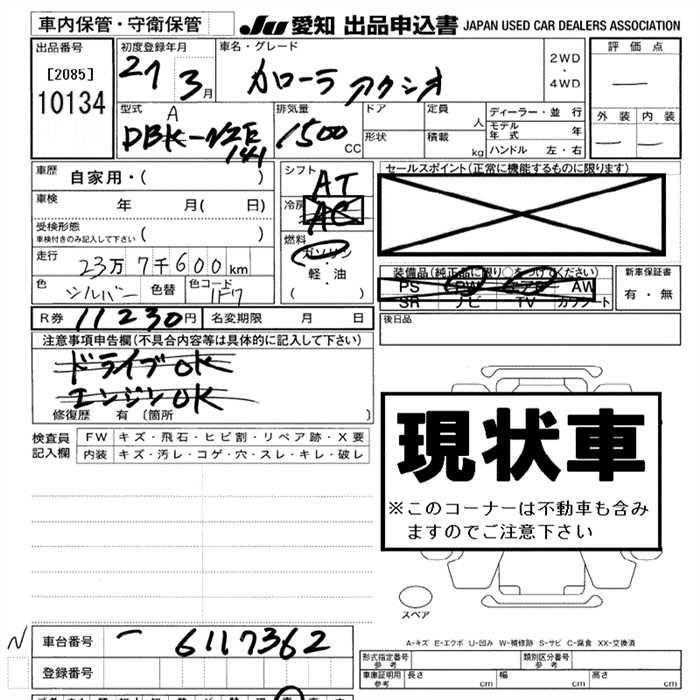 車内保管・守衛保管
JU 愛知 出品申込書 JAPAN USED CAR DEALERS ASSOCIATION
出品番号 初度登録年月 車名・グレード 2WD・4WD 評価点
[2085]
10134
27 3月 カローラ アクシオ
―
型式 排気量 ドア 定員 人 ディーラー・並行 外装 内装
DBA-NZE141 1500CC
形状 積載 kg モデル年式 年
ハンドル 左・右
― ―
車歴 自家用・( )
シフト AT
セールスポイント(正常に機能するものに限ります)
車検 年 月( 日)
冷房 AC
受検形態 車検付きのみ記入して下さい ( )
燃料 ガソリン・軽油 ( )
走行 23万7千600km
装備品(純正品に限り○をつけてください) 新車保証書
PS PW エアB AW 有・無
SR ナビ TV カワシート
色 シルバー 色替 色コード 1F7
R券 11230円 名変期限 月 日
後日品
注意事項申告欄(不具合内容等は具体的に記入して下さい)
ドライブOK
エンジンOK
修復歴 有 〔箇所 〕
現状車
※このコーナーは不動車も含みますのでご注意下さい
検査員記入欄 FW キズ・飛石・ヒビ割・リペア跡・X要
内装 キズ・汚レ・コゲ・穴・スレ・キレ・破レ
スペア
A-キズ E-エクボ U-凹み W-補修跡 S-サビ C-腐食 XX-交換済
N 車台番号 - 6117362
型式指定番号 参考 類別区分番号 参考
登録番号
車庫証明用 参考 長さ 幅 高さ cm cm cm